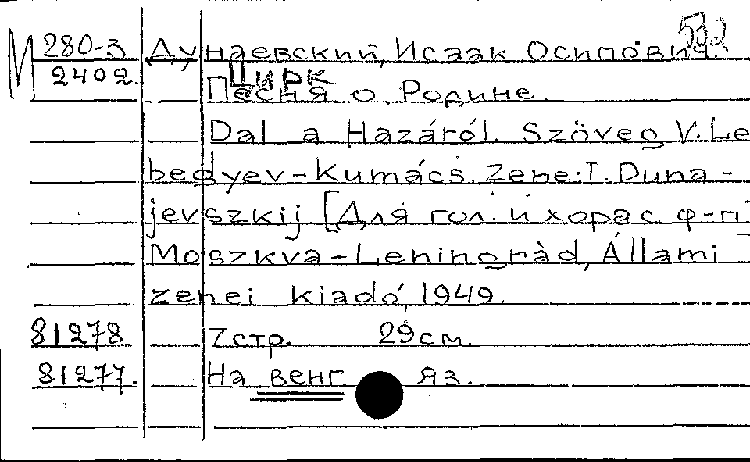 М 280-3 Дунаевский, Исаак Осипович. 532
2402. Цирк
Песня о Родине.
Dal a Hazáról. Szöveg V. Le
begyev-Kumács. Zene: I. Duna-
jevszkij [Для гол. и хора с ф-п
Moszkva-Leningràd, Állami
zenei kiadó, 1949.
81278 7стр. 29см.
81277. На венг яз.